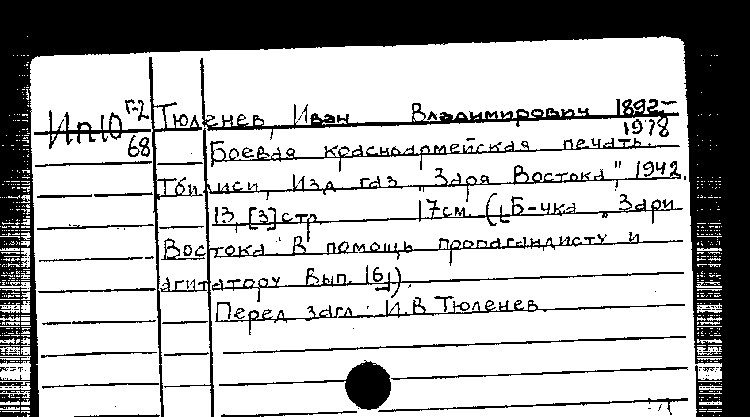 Ип10 Г-2 Тюленев, Иван Владимирович 1892-
68 1978
Боевая красноармейская печать.
Тбилиси, Изд. газ. "Заря Востока", 1942.
13, [3] стр. 17см. (Б-чка "Зари
Востока" В помощь пропагандисту и
агитатору Вып. 16).
Перед загл.: И.В.Тюленев.